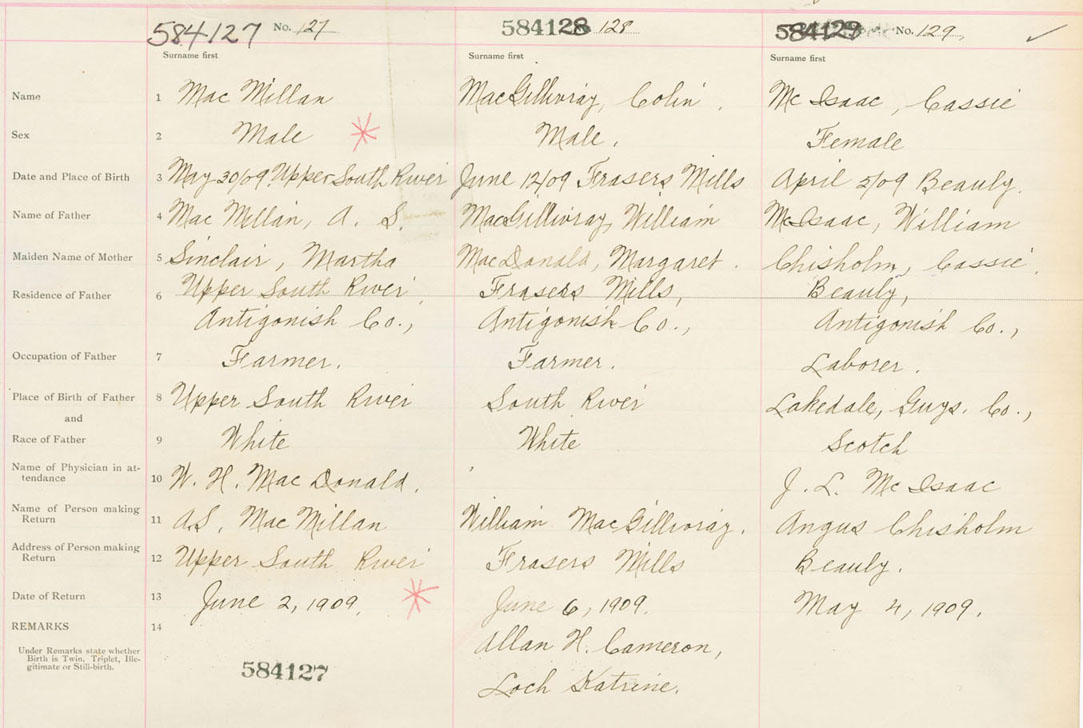 584127 No. 127 584128 128 584129 No. 129.
Surname first Surname first Surname first
Name 1 Mac Millan MacGillivray, Colin. McIsaac, Cassie
Sex 2 Male Male. Female
Date and Place of Birth 3 May 30/09. Upper South River June 12/09 Frasers Mills April 5/09 Beauly.
Name of Father 4 Mac Millan, A. S. MacGillivray, William McIsaac, William
Maiden Name of Mother 5 Sinclair, Martha MacDonald, Margaret. Chisholm, Cassie.
Residence of Father 6 Upper South River, Frasers Mills, Beauly,
Antigonish Co., Antigonish Co., Antigonish Co.,
Occupation of Father 7 Farmer. Farmer. Laborer.
Place of Birth of Father 8 Upper South River South River Lakedale, Guys. Co.,
and
Race of Father 9 White White Scotch
Name of Physician in at-
tendance 10 W. H. Mac Donald. J. L. McIsaac
Name of Person making
Return 11 A.S. Mac Millan William MacGillivray. Angus Chisholm
Address of Person making
Return 12 Upper South River Frasers Mills Beauly.
Date of Return 13 June 2, 1909. June 6, 1909. May 4, 1909.
REMARKS 14 Allan H. Cameron,
Under Remarks state whether
Birth is Twin, Triplet, Ille-
gitimate or Still-birth.
584127 Loch Katrine.